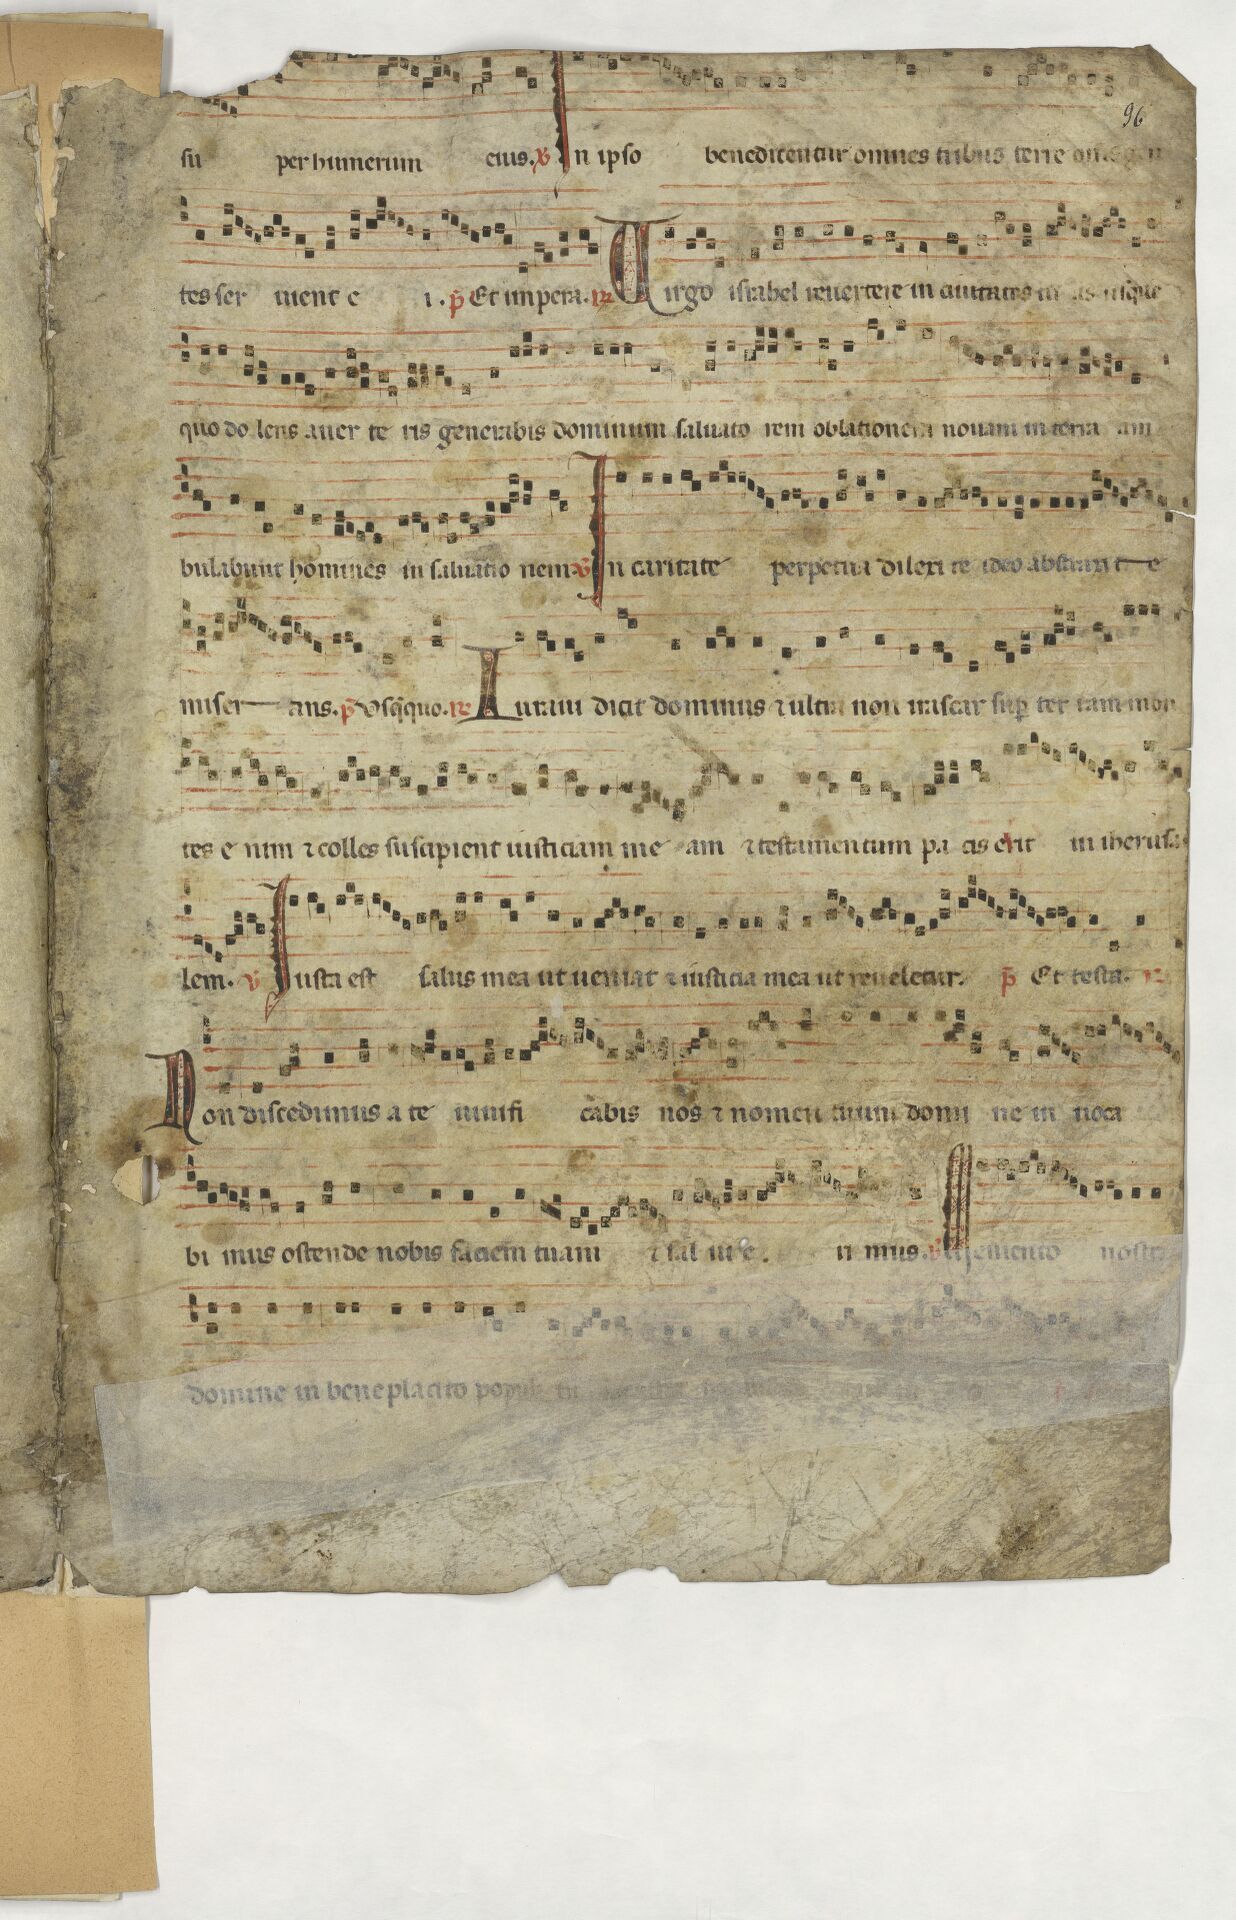 96
su per humerum eius. ℣ In ipso benedicentur omnes tribus terre om̄s gen
tes ser uient e i. p̄ Et impera. ℟ Uirgo israhel reuertere in ciuitates tuas usq̄que
quo do lens auer te ris generabis dominum saluato rem oblationem nouam in terra am
bulabunt homines in saluatio nem ℣ In caritate perpetua dilexi te ideo abstraxi te
miser ans. p̄ Usq̄quo. ℟ Iuraui dicit dominus ⁊ ultra non irascar sup̄ ter ram mon
tes e nim ⁊ colles suscipient iusticiam me am ⁊ testamentum pa cis erit in iherusa
lem. ℣ Iusta est salus mea ut ueniat ⁊ iusticia mea ut reueletur. p̄ Et testa. ℟
Non discedimus a te uiuifi cabis nos ⁊ nomen tuum domi ne in uoca
bi mus ostende nobis faciem tuam ⁊ sal ui e. ri mus. ℣ Memento nostri
domine in beneplacito populi tui